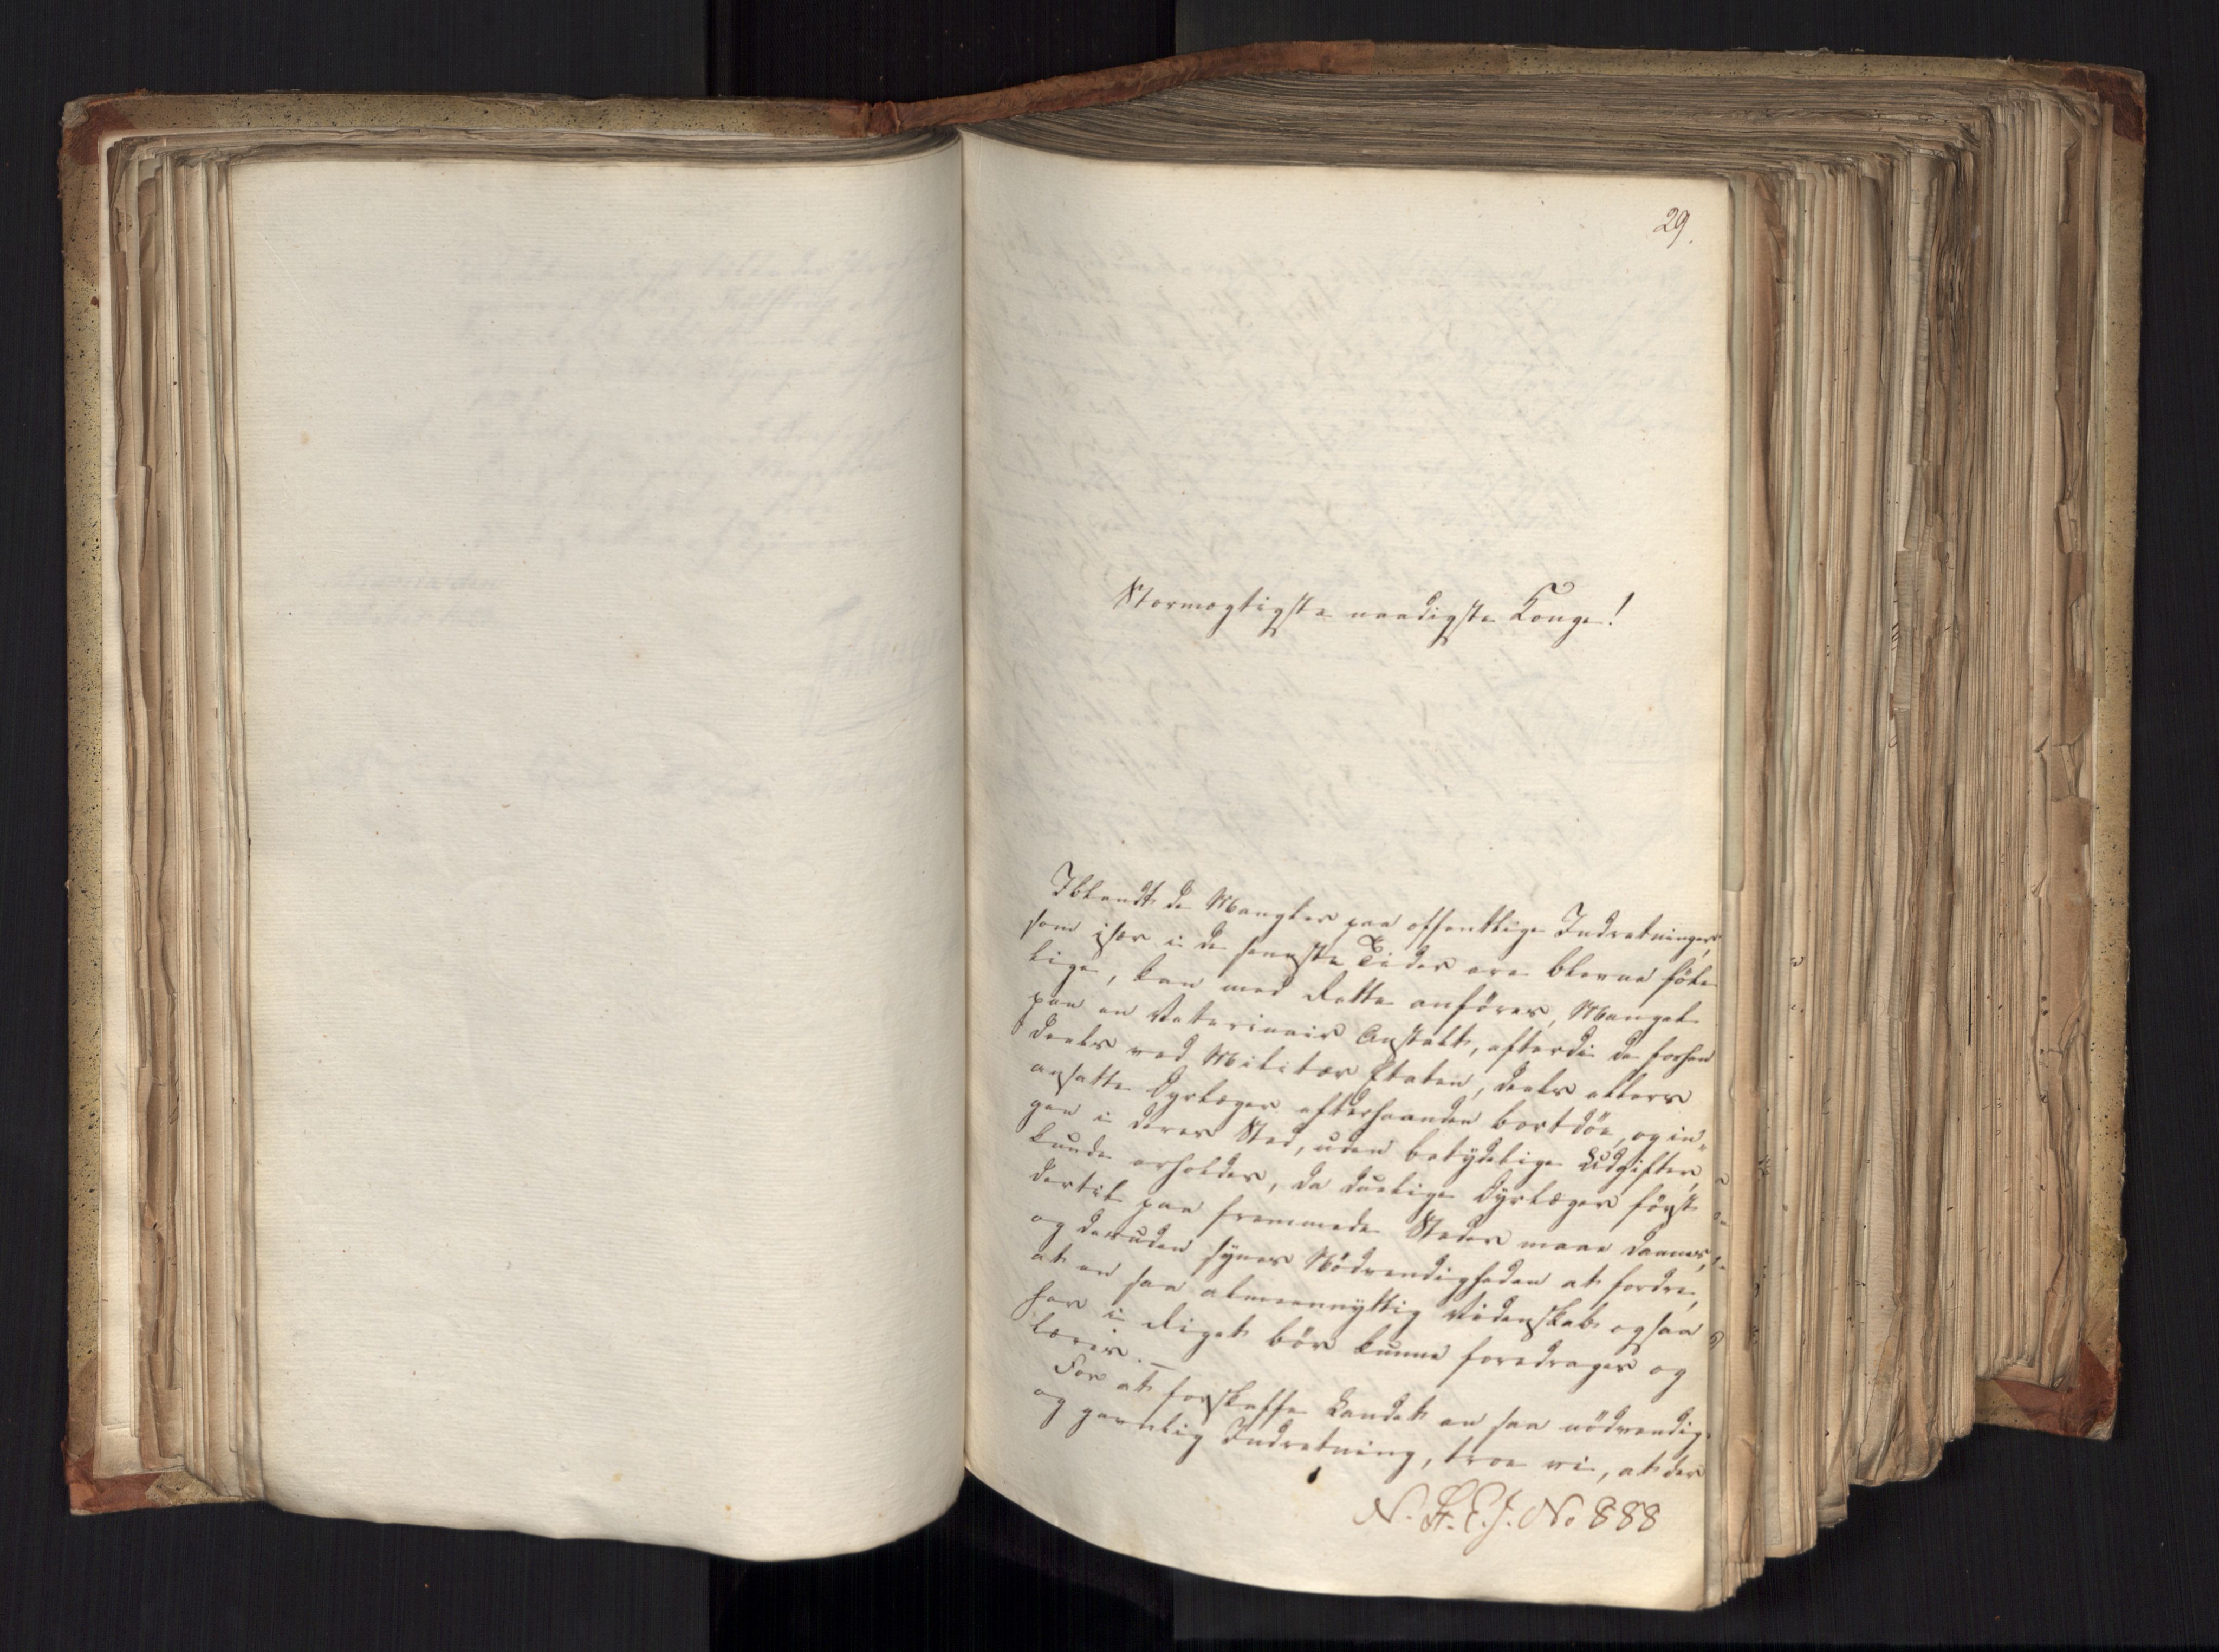 29.
Stormægtigste naadigste Konge!
Iblandt de Mangler paa offentlige Indretninger,
som især i de seneste Tider ere blevne føle-
lige, kan med Rette anføres, Mangel
paa en Veterinair Anstalt, efterdi de forhen
deels ved Militær Etaten, deels ellers
ansatte Dyrlæger efterhaanden bortdøe, og in-
gen i deres Sted, uden betydelige Udgifter,
kunde erholdes, da duelige Dyrlæger først
dertil paa fremmede Steder maae dannes,
og desuden synes Nødvendigheden at fordre,
at en saa almeennyttig Videnskab ogsaa
her i Riget bør kunne foredrages og
læres. —
For at forskaffe Landet en saa nødvendig
og gavnlig Indretning, troe vi, at der
N. St. E. J. No 888